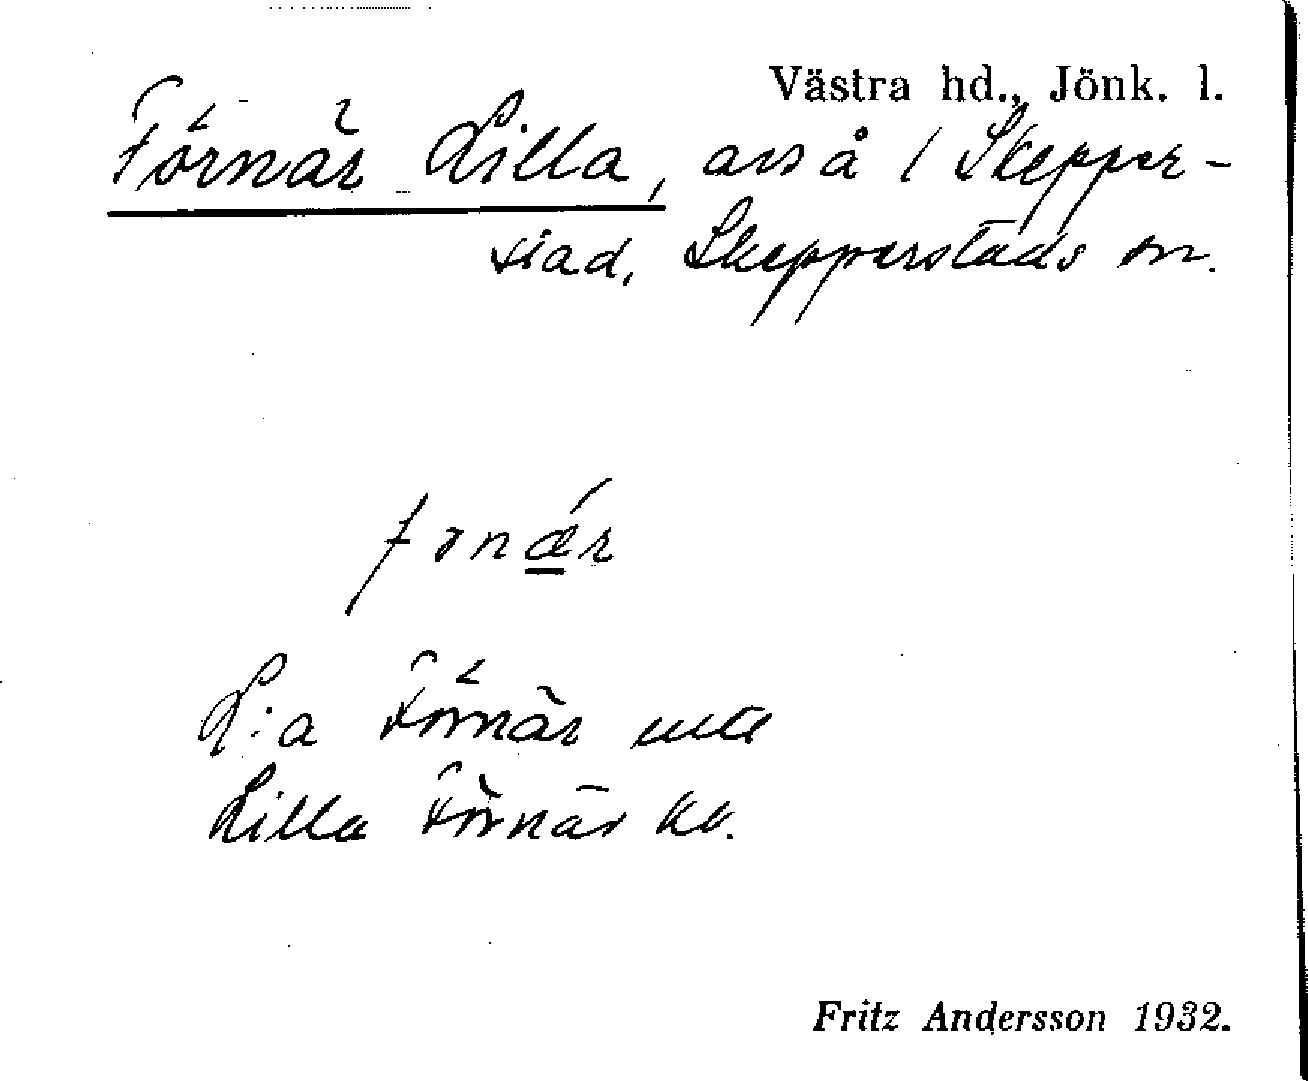 Västra hd., Jönk. l.
Förnär Lilla, avs å 1 Skepper-
stad, Skepperstads sn.
fonǽr
L:a Förnär
Lilla Förnär kv.
Fritz Andersson 1932.